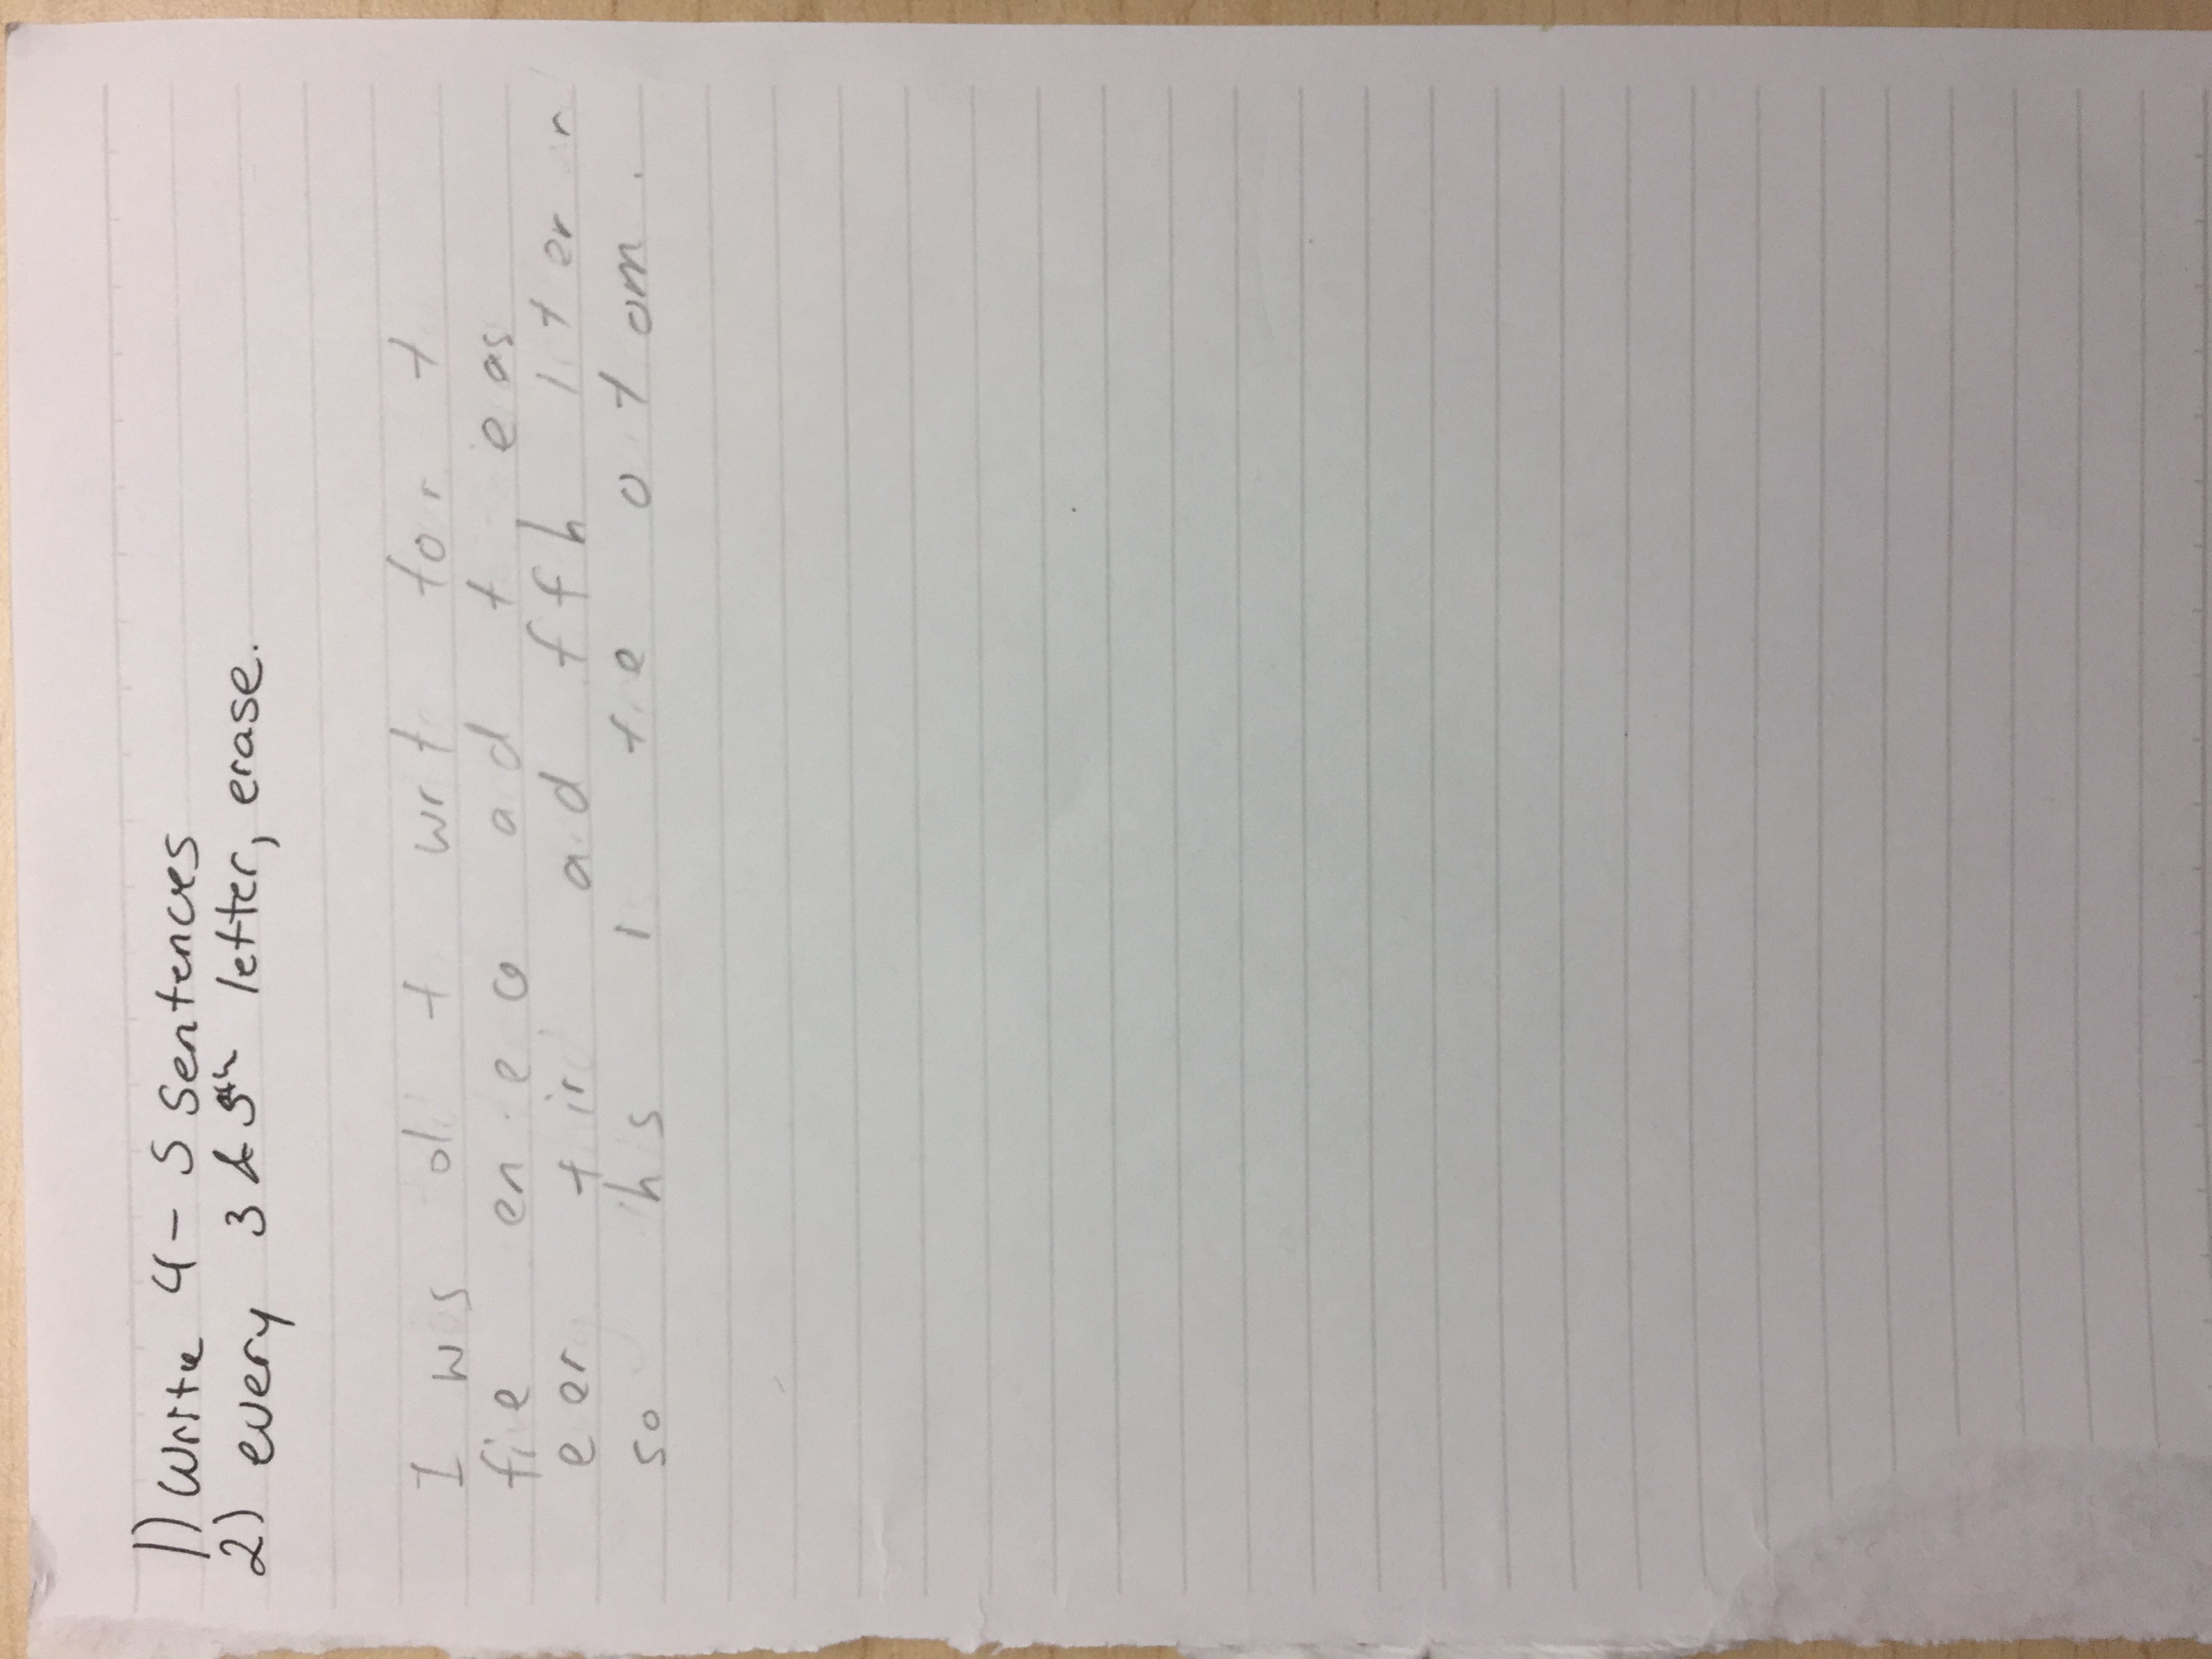 1) Write 4 - 5 Sentences
2) every 3 & 5th letter, erase.
I w s ol t wr t fo r t
fi e en e c ad t e as
e er t ir a d f f h l t er r
so h s I t e o t om .